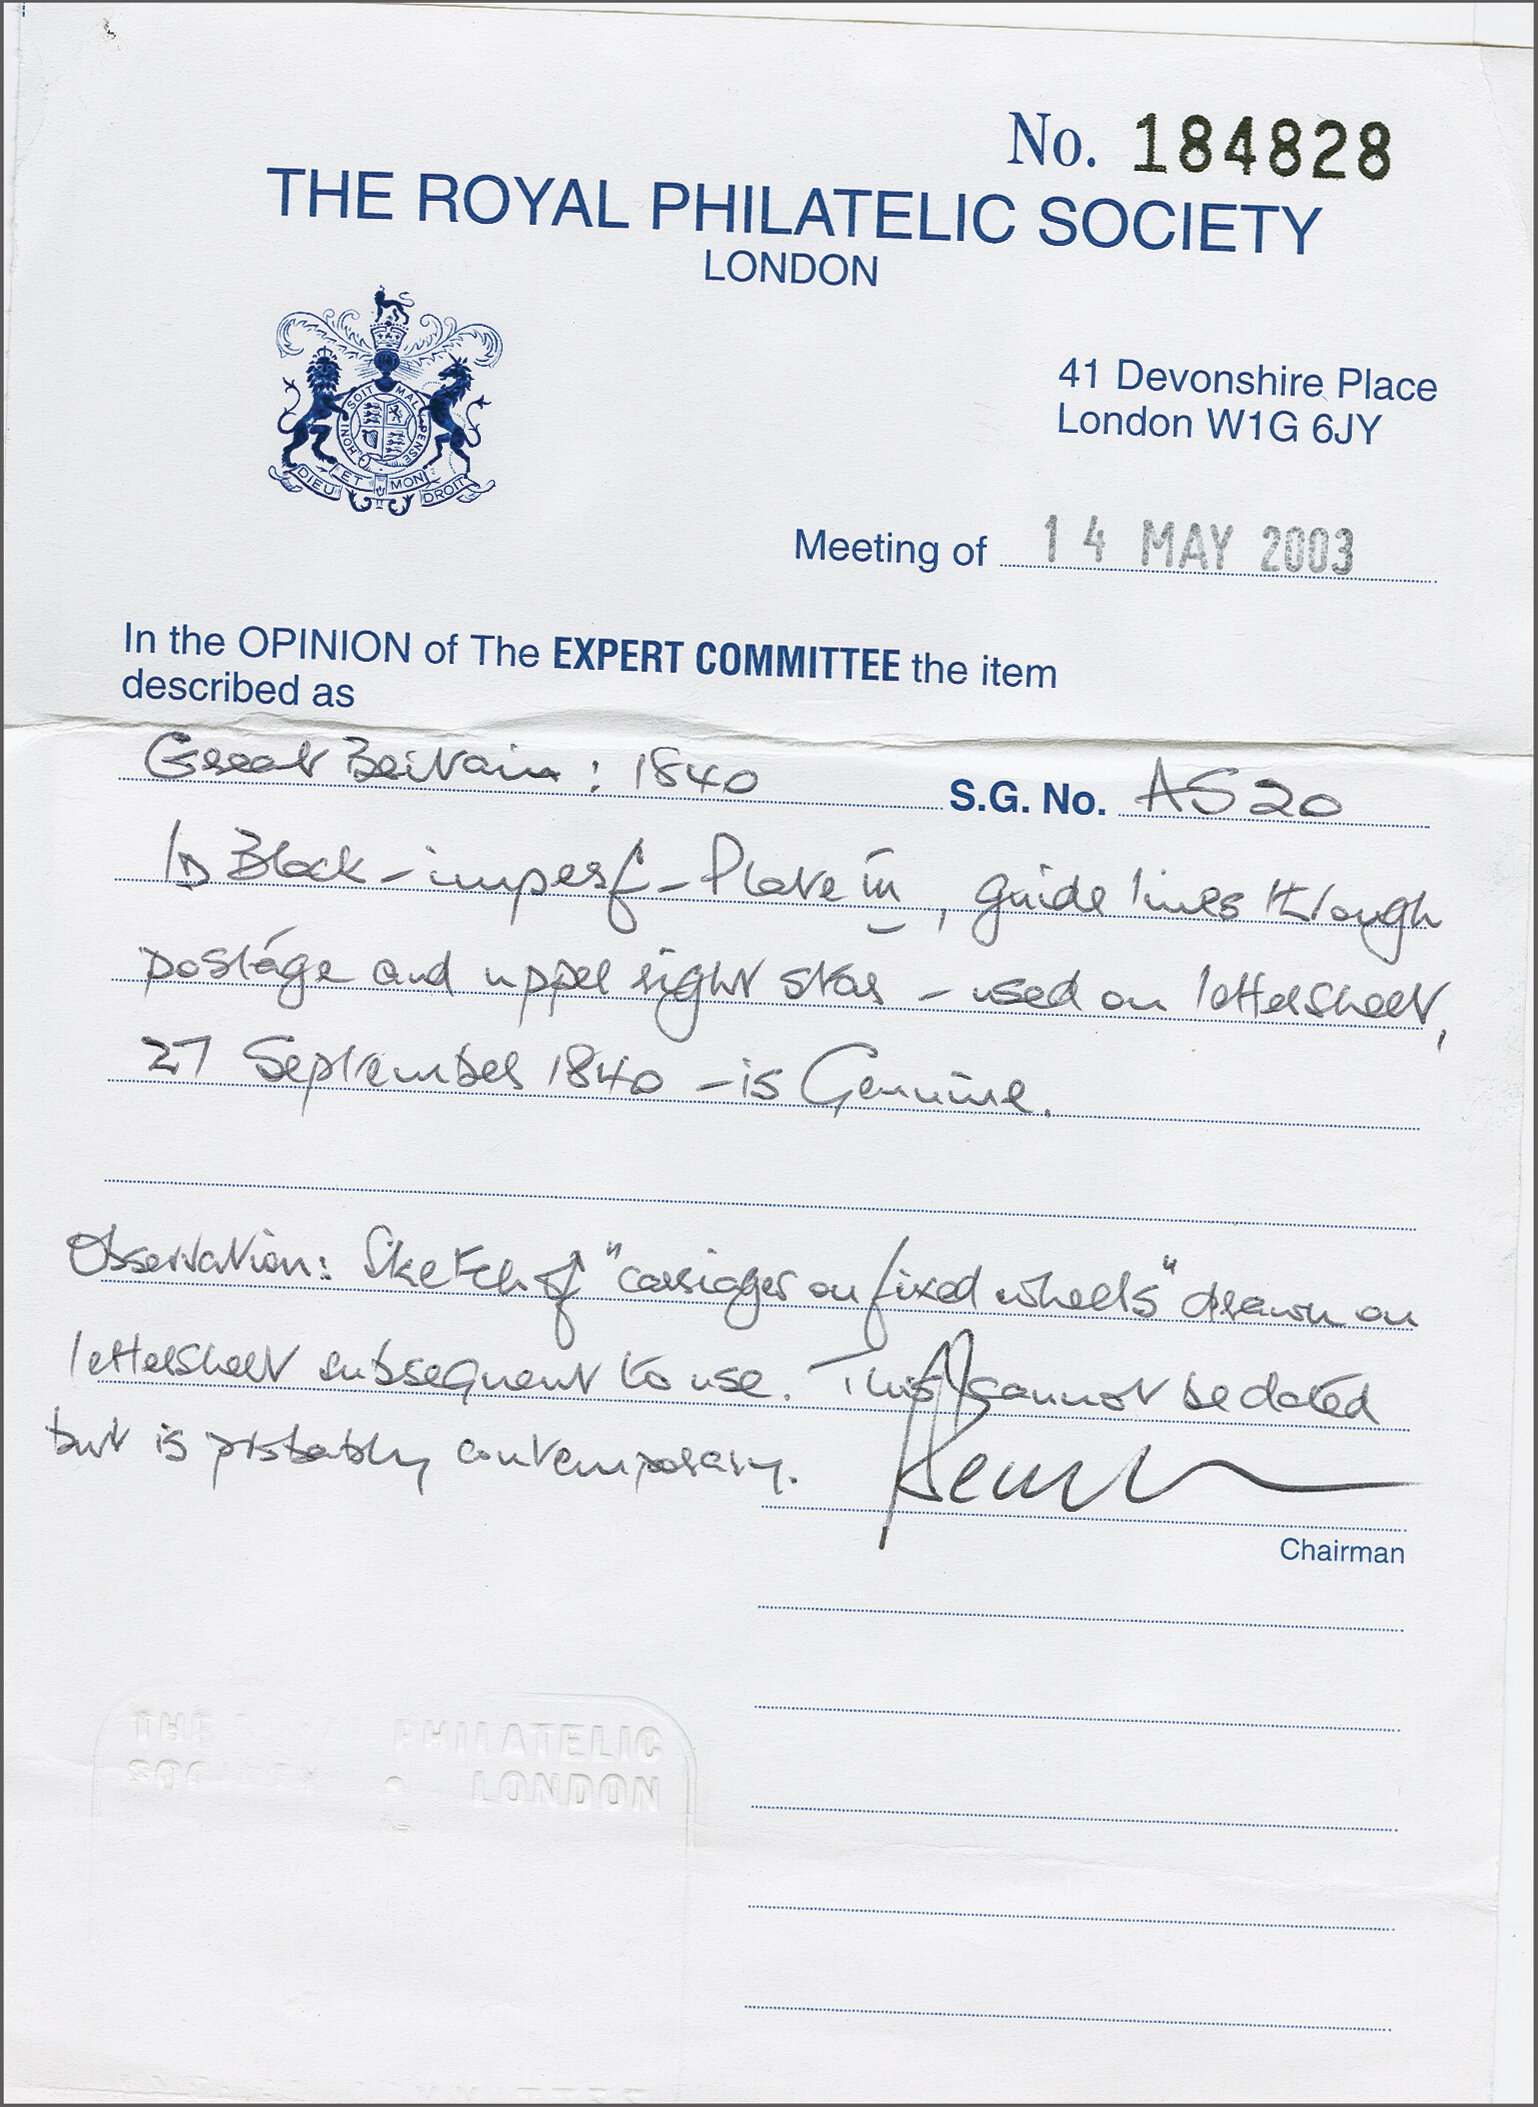 No. 184828
THE ROYAL PHILATELIC SOCIETY
LONDON
HONI SOIT MAL PENSE
DIEU ET MON DROIT
41 Devonshire Place
London W1G 6JY
Meeting of 14 MAY 2003
In the OPINION of The EXPERT COMMITTEE the item
described as
Great Britain: 1840 S.G. No. AS20
1D Black - imperf - Plate III, guide lines through
postage and upper right star - used on lettersheet,
27 September 1840 - is Genuine.
Observation: Sketch of "carriages on fixed wheels" drawn on
lettersheet subsequent to use. This cannot be dated
but is probably contemporary.
Chairman
THE PHILATELIC
SOCIETY LONDON